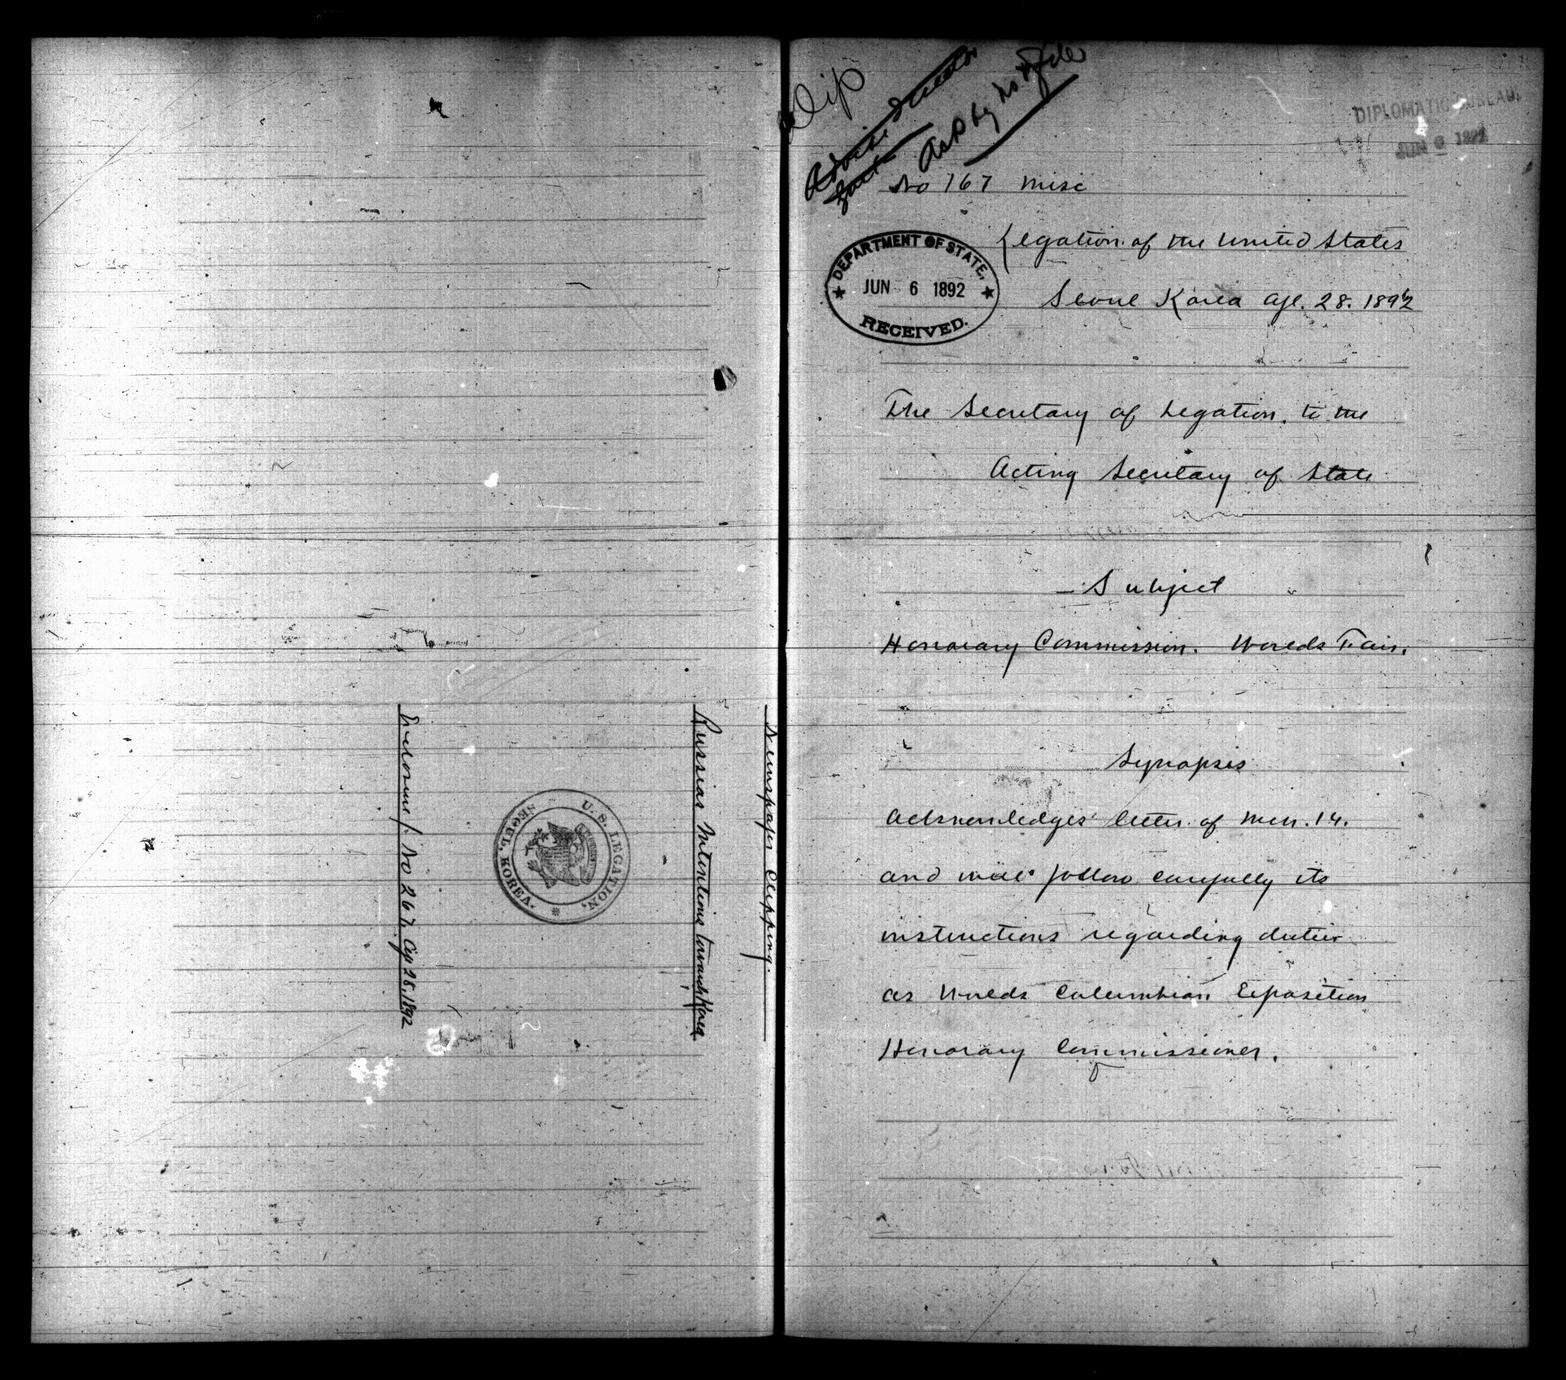 Inclosure 1. No 267. Ap 28. 1892
U. S. LEGATION,
SEOUL, KOREA.
Russias intentions towards Korea
Newspaper Clipping.
Dip
DIPLOMATIC BUREAU,
JUN 6 1892
No 167 Misc
Legation of the United States
Seoul Korea Apl. 28. 1892
DEPARTMENT OF STATE,
JUN 6 1892
RECEIVED.
The Secretary of Legation, to the
Acting Secretary of State
Subject
Honorary Commission. Worlds Fair.
Synopsis
Acknowledges letter of Mch. 14.
and will follow carefully its
instructions regarding duties
as Worlds Columbian Exposition
Honorary Commissioner.